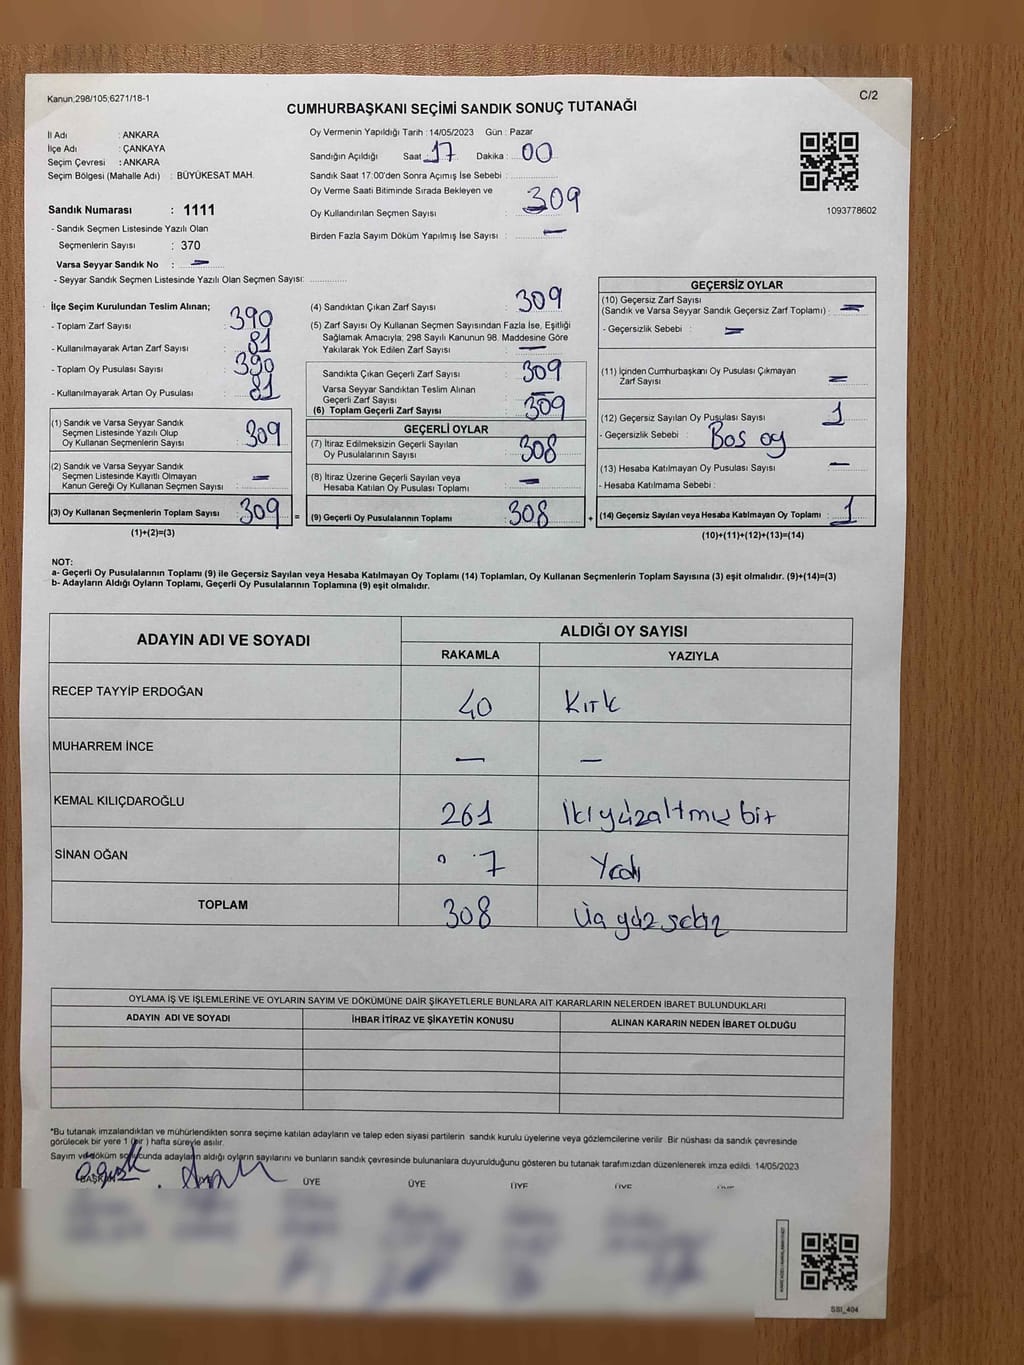 Kanun;298/105;6271/18-1
C/2
CUMHURBAŞKANI SEÇİMİ SANDIK SONUÇ TUTANAĞI
İl Adı : ANKARA
İlçe Adı : ÇANKAYA
Seçim Çevresi : ANKARA
Seçim Bölgesi (Mahalle Adı) : BÜYÜKESAT MAH.
Sandık Numarası : 1111
- Sandık Seçmen Listesinde Yazılı Olan
Seçmenlerin Sayısı : 370
Varsa Seyyar Sandık No : —
- Seyyar Sandık Seçmen Listesinde Yazılı Olan Seçmen Sayısı: ..............
Oy Vermenin Yapıldığı Tarih : 14/05/2023 Gün : Pazar
Sandığın Açıldığı Saat 17 Dakika : 00
Sandık Saat 17:00'den Sonra Açımış İse Sebebi :
Oy Verme Saati Bitiminde Sırada Bekleyen ve
Oy Kullandırılan Seçmen Sayısı : 309
Birden Fazla Sayım Döküm Yapılmış İse Sayısı : —
1093778602
İlçe Seçim Kurulundan Teslim Alınan;
- Toplam Zarf Sayısı : 390
- Kullanılmayarak Artan Zarf Sayısı : 81
- Toplam Oy Pusulası Sayısı : 390
- Kullanılmayarak Artan Oy Pusulası : 81
(1) Sandık ve Varsa Seyyar Sandık
Seçmen Listesinde Yazılı Olup
Oy Kullanan Seçmenlerin Sayısı : 309
(2) Sandık ve Varsa Seyyar Sandık
Seçmen Listesinde Kayıtlı Olmayan
Kanun Gereği Oy Kullanan Seçmen Sayısı : —
(3) Oy Kullanan Seçmenlerin Toplam Sayısı : 309 =
(1)+(2)=(3)
(4) Sandıktan Çıkan Zarf Sayısı : 309
(5) Zarf Sayısı Oy Kullanan Seçmen Sayısından Fazla İse, Eşitliği
Sağlamak Amacıyla; 298 Sayılı Kanunun 98. Maddesine Göre
Yakılarak Yok Edilen Zarf Sayısı : —
Sandıkta Çıkan Geçerli Zarf Sayısı : 309
Varsa Seyyar Sandıktan Teslim Alınan
Geçerli Zarf Sayısı : —
(6) Toplam Geçerli Zarf Sayısı : 309
GEÇERLİ OYLAR
(7) İtiraz Edilmeksizin Geçerli Sayılan
Oy Pusulalarının Sayısı : 308
(8) İtiraz Üzerine Geçerli Sayılan veya
Hesaba Katılan Oy Pusulası Toplamı : —
(9) Geçerli Oy Pusulalarının Toplamı : 308 +
GEÇERSİZ OYLAR
(10) Geçersiz Zarf Sayısı
(Sandık ve Varsa Seyyar Sandık Geçersiz Zarf Toplamı) : —
- Geçersizlik Sebebi : —
(11) İçinden Cumhurbaşkanı Oy Pusulası Çıkmayan
Zarf Sayısı : —
(12) Geçersiz Sayılan Oy Pusulası Sayısı : 1
- Geçersizlik Sebebi : Bos oy
(13) Hesaba Katılmayan Oy Pusulası Sayısı : —
- Hesaba Katılmama Sebebi :
(14) Geçersiz Sayılan veya Hesaba Katılmayan Oy Toplamı : 1
(10)+(11)+(12)+(13)=(14)
NOT:
a- Geçerli Oy Pusulalarının Toplamı (9) ile Geçersiz Sayılan veya Hesaba Katılmayan Oy Toplamı (14) Toplamları, Oy Kullanan Seçmenlerin Toplam Sayısına (3) eşit olmalıdır. (9)+(14)=(3)
b- Adayların Aldığı Oyların Toplamı, Geçerli Oy Pusulalarının Toplamına (9) eşit olmalıdır.
ADAYIN ADI VE SOYADI ALDIĞI OY SAYISI
RAKAMLA YAZIYLA
RECEP TAYYİP ERDOĞAN 40 Kırk
MUHARREM İNCE — —
KEMAL KILIÇDAROĞLU 261 İkiyüzaltmış bir
SİNAN OĞAN 0 7 Yedi
TOPLAM 308 Üç yüz sekiz
OYLAMA İŞ VE İŞLEMLERİNE VE OYLARIN SAYIM VE DÖKÜMÜNE DAİR ŞİKAYETLERLE BUNLARA AİT KARARLARIN NELERDEN İBARET BULUNDUKLARI
ADAYIN ADI VE SOYADI İHBAR İTİRAZ VE ŞİKAYETİN KONUSU ALINAN KARARIN NEDEN İBARET OLDUĞU
*Bu tutanak imzalandıktan ve mühürlendikten sonra seçime katılan adayların ve talep eden siyasi partilerin sandık kurulu üyelerine veya gözlemcilerine verilir. Bir nüshası da sandık çevresinde
görülecek bir yere 1 (bir ) hafta süreyle asılır.
Sayım ve döküm sonucunda adayların aldığı oyların sayılarını ve bunların sandık çevresinde bulunanlara duyurulduğunu gösteren bu tutanak tarafımızdan düzenlenerek imza edildi. 14/05/2023
BAŞKAN ÜYE ÜYE ÜYE ÜYE
SSI_404